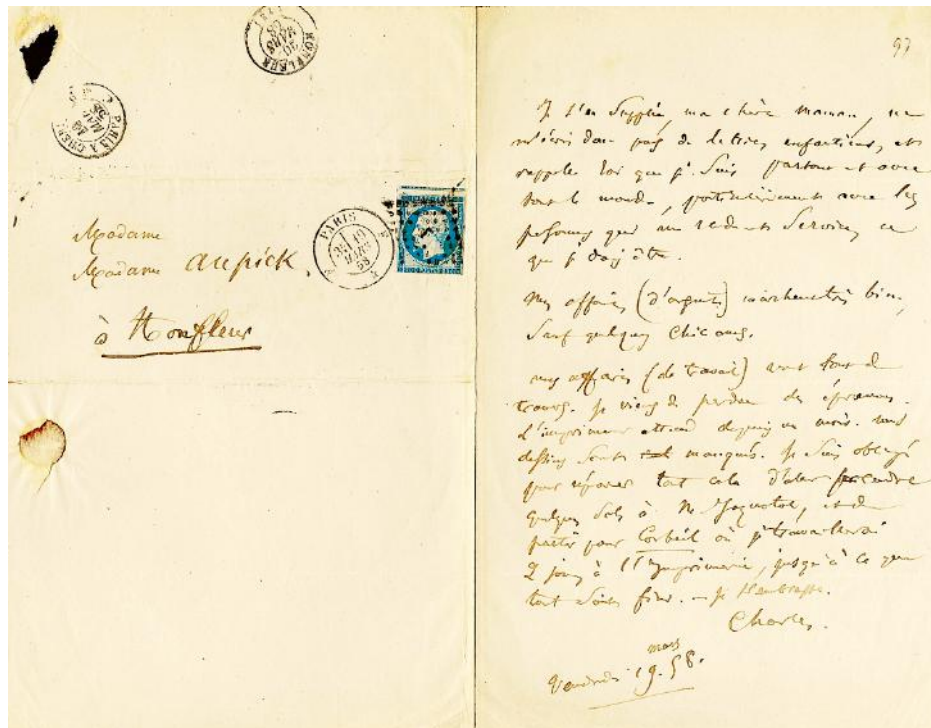 HONFLEUR
MARS
58
PARIS A CHER
MARS
58
PARIS
19
MARS
58
Madame
Madame Aupick.
à Honfleur
97
Je t'en supplie, ma chère maman, ne
m'écris donc pas de lettres enfantines, et
rappelle toi que je suis partout et avec
tout le monde, particulièrement avec les
personnes qui me rendent service, ce
que je dois être.
Mes affaires (d'argent) marchent très bien,
sauf quelques chicanes.
mes affaires (de travail) vont tout de
travers. Je viens de perdre des épreuves.
L'imprimeur attend depuis un mois. mes
dessins sont manqués. Je suis obligé
pour réparer tout cela d'aller prendre
quelques sols à M. Jaquotot, et de
partir pour Corbeil où je travaillerai
2 jours à l'Imprimerie, jusqu'à ce que
tout soit fini. — Je t'embrasse.
Charles.
mars
Vendredi 19. 58.